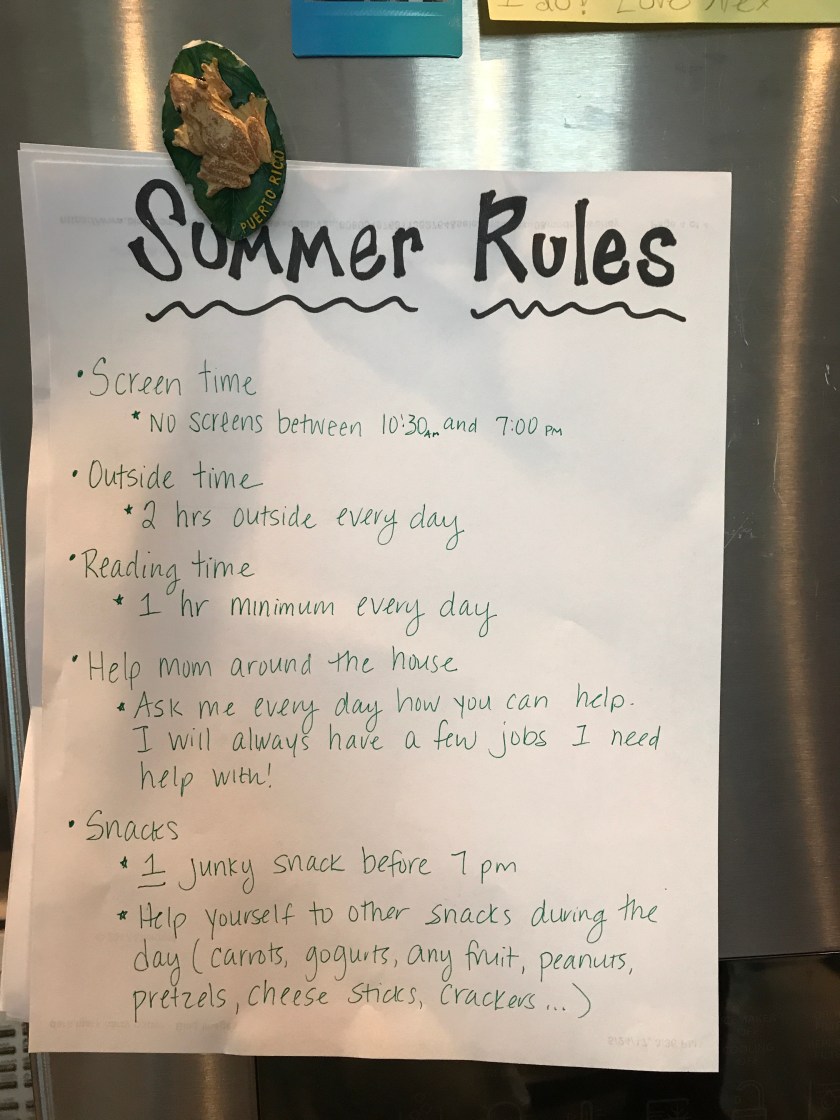 I do! Love
PUERTO RICO
Summer Rules
• Screen time
* No screens between 10:30 AM and 7:00 PM
• Outside time
* 2 hrs outside every day
• Reading time
* 1 hr minimum every day
• Help mom around the house
* Ask me every day how you can help.
I will always have a few jobs I need
help with!
• Snacks
* 1 junky snack before 7 pm
* Help yourself to other snacks during the
day (carrots, gogurts, any fruit, peanuts,
pretzels, cheese sticks, crackers...)